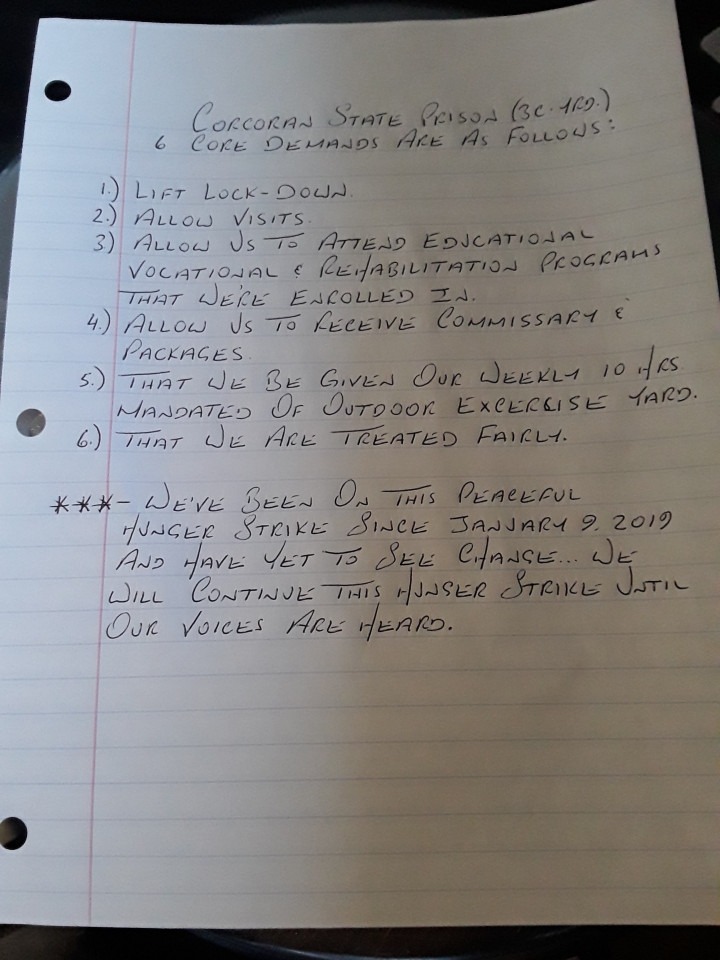 CORCORAN STATE PRISON (3C. YRD.)
6 CORE DEMANDS ARE AS FOLLOWS:
1.) LIFT LOCK-DOWN.
2.) ALLOW VISITS.
3) ALLOW US TO ATTEND EDUCATIONAL
VOCATIONAL & REHABILITATION PROGRAMS
THAT WE'RE ENROLLED IN.
4.) ALLOW US TO RECEIVE COMMISSARY &
PACKAGES.
5.) THAT WE BE GIVEN OUR WEEKLY 10 HRS
MANDATED OF OUTDOOR EXCERCISE YARD.
6.) THAT WE ARE TREATED FAIRLY.
***- WE'VE BEEN ON THIS PEACEFUL
HUNGER STRIKE SINCE JANUARY 9, 2019
AND HAVE YET TO SEE CHANGE... WE
WILL CONTINUE THIS HUNGER STRIKE UNTIL
OUR VOICES ARE HEARD.